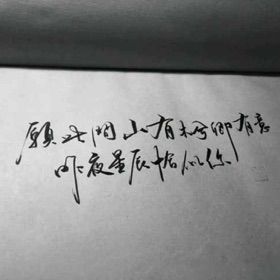 願此间山有木兮卿有意
昨夜星辰恰似你